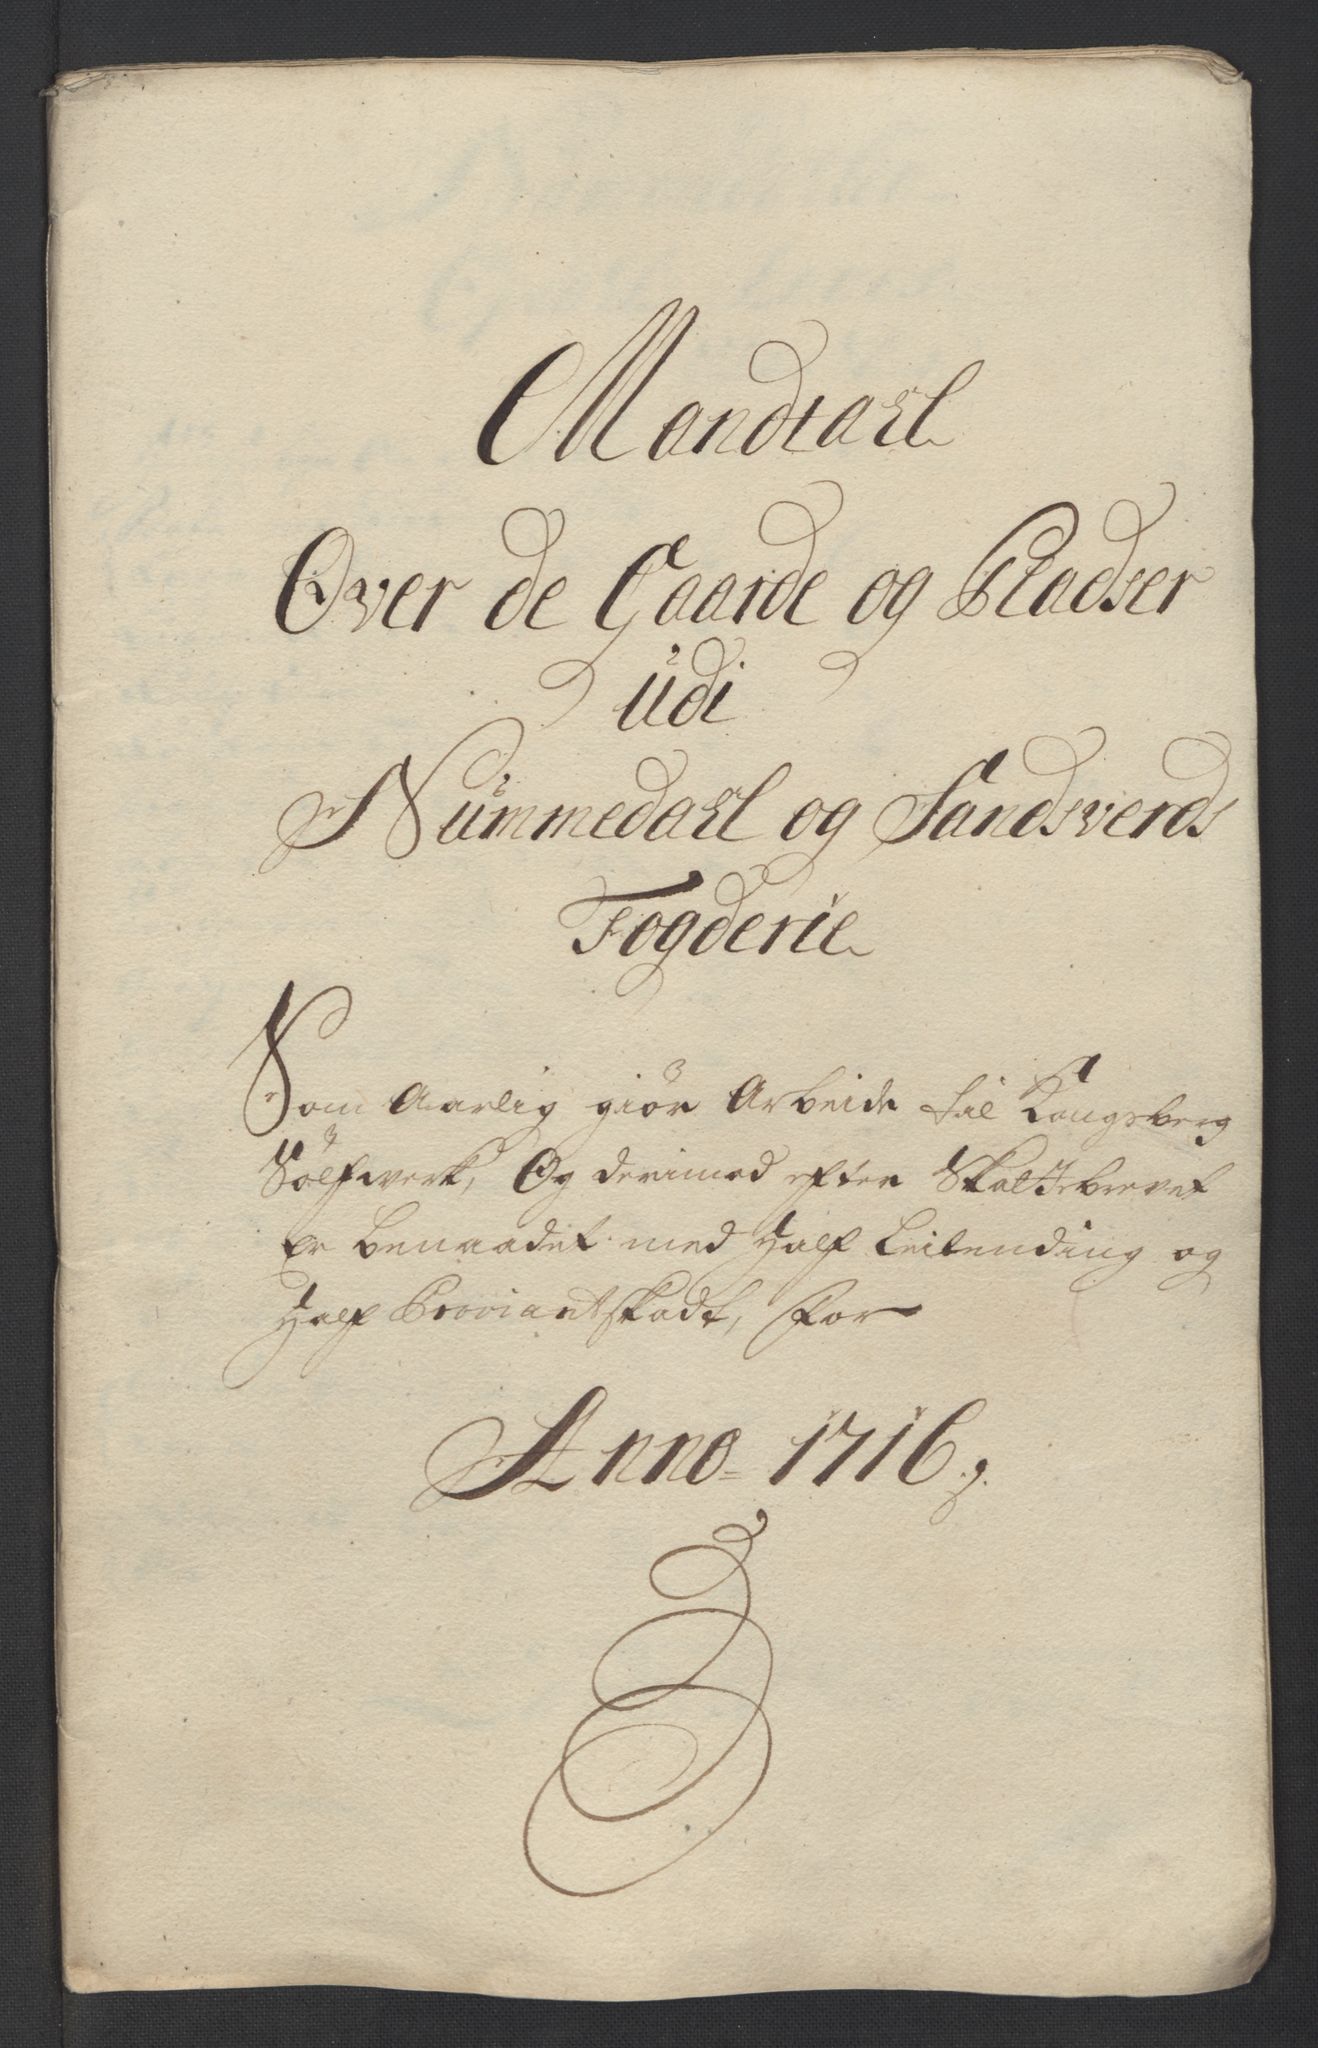 Mandtall
Over de Gaarde og Pladser
udi
Nummedall og Sandsverds
Fogderie
Som Aarlig giør Arbeide til Kongsberg
Sølfwerk, Og derimod efter Skattebrevet
Er benaadet med Half Leilending og
Half Proviantskadt, For
Anno 1716